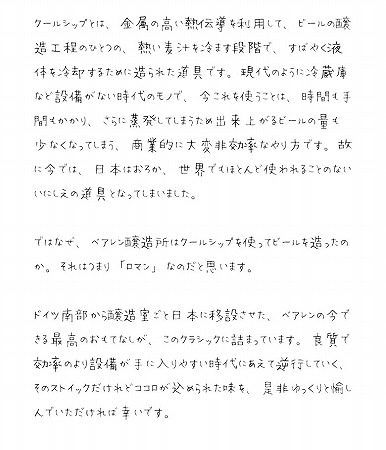 クールシップとは、金属の高い熱伝導を利用して、ビールの醸
造工程のひとつの、熱い麦汁を冷ます段階で、すばやく液
体を冷却するために造られた道具です。現代のように冷蔵庫
など設備がない時代のモノで、今これを使うことは、時間も手
間もかかり、さらに蒸発してしまうため出来上がるビールの量も
少なくなってしまう、商業的に大変非効率なやり方です。故
に今では、日本はおろか、世界でもほとんど使われることのない
いにしえの道具となってしまいました。
ではなぜ、ベアレン醸造所はクールシップを使ってビールを造ったの
か。それはつまり「ロマン」なのだと思います。
ドイツ南部から醸造室ごと日本に移設させた、ベアレンの今で
きる最高のおもてなしが、このクラシックに詰まっています。良質で
効率のより設備が手に入りやすい時代にあえて逆行していく、
そのストイックだけれどココロが込められた味を、是非ゆっくりと愉し
んでいただければ幸いです。